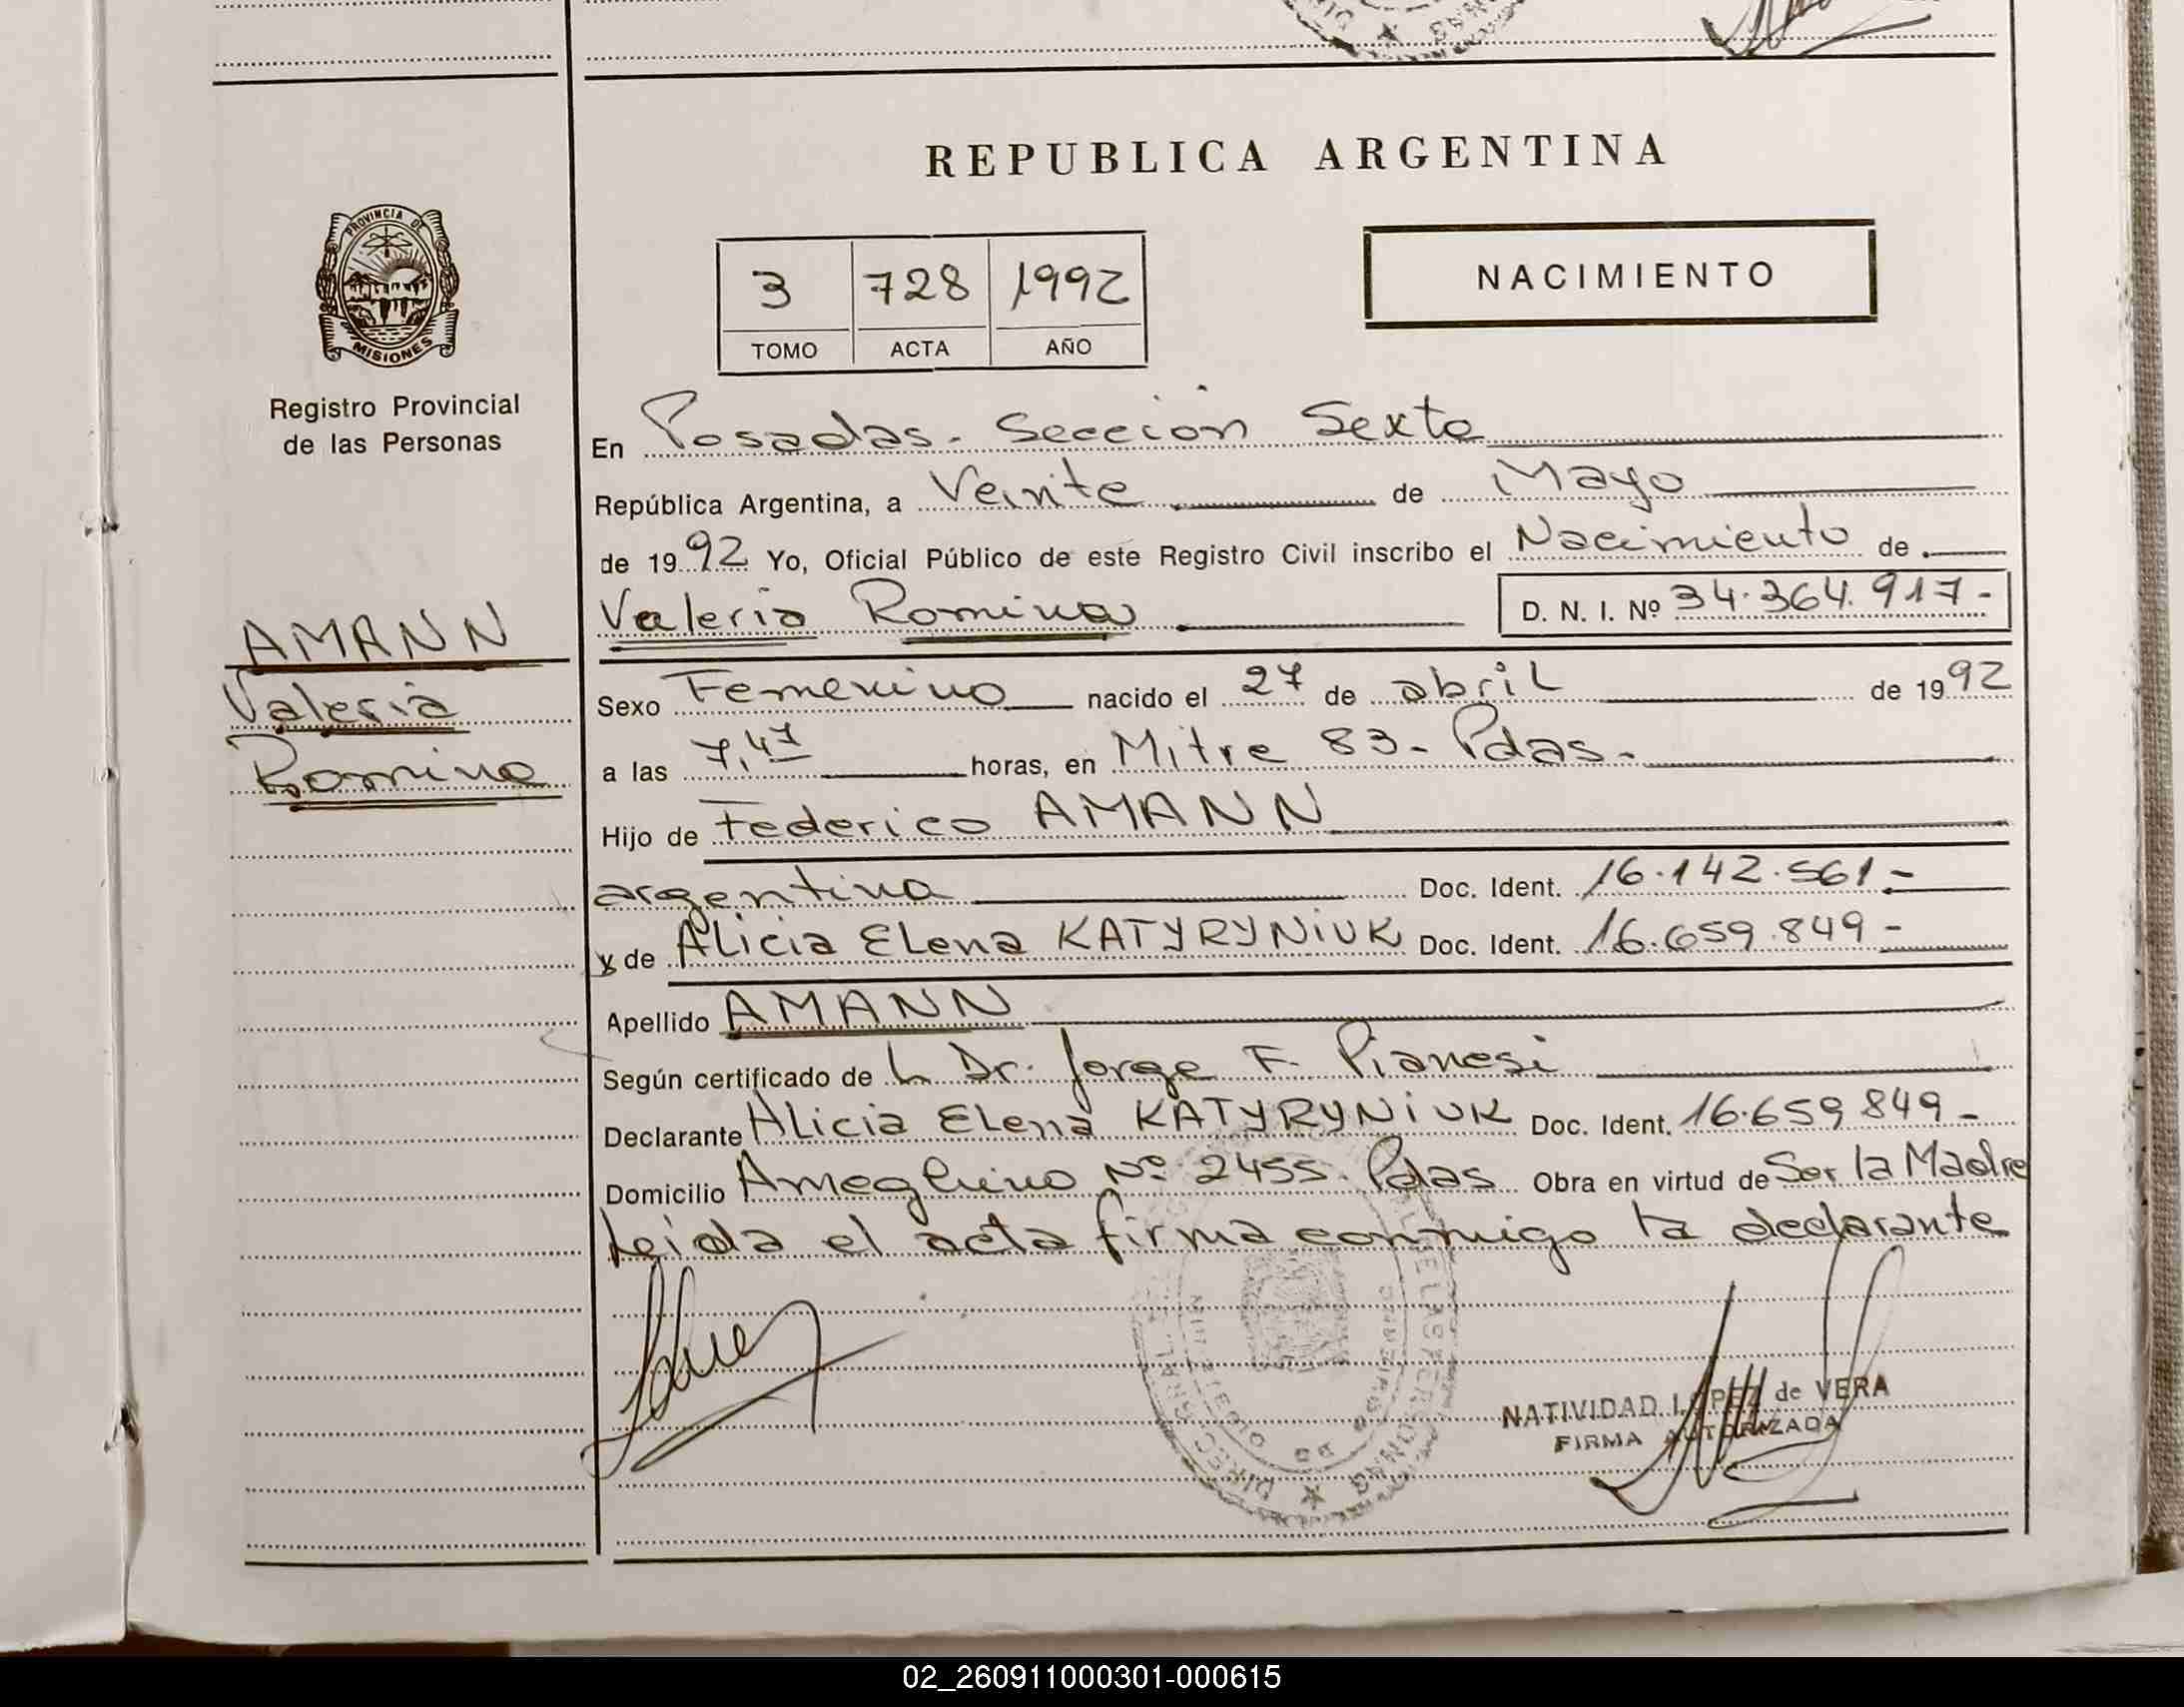 REPUBLICA ARGENTINA
PROVINCIA DE
MISIONES
Registro Provincial
de las Personas
3 728 1992
TOMO ACTA AÑO
NACIMIENTO
En Posadas - Sección Sexta
República Argentina, a Veinte de Mayo
de 1992 Yo, Oficial Público de este Registro Civil inscribo el Nacimiento de
Valeria Romina D. N. I. Nº 34.364.917-
AMANN
Valeria
Romina
Sexo Femenino nacido el 27 de abril de 1992
a las 7,47 horas, en Mitre 83- Pdas.
Hijo de Federico AMANN
argentina Doc. Ident. 16.142.561-
y de Alicia Elena KATYRYNiUK Doc. Ident. 16.659.849-
Apellido AMANN
Según certificado de L Dr. Jorge F. Pianesi
Declarante Alicia Elena KATYRYNiUK Doc. Ident. 16.659849-
Domicilio Ameghino Nº 2455. Pdas Obra en virtud de Ser la Madre
Leida el acta firma conmigo la declarante
NATIVIDAD LOPEZ de VERA
FIRMA AUTORIZADA
02_260911000301-000615